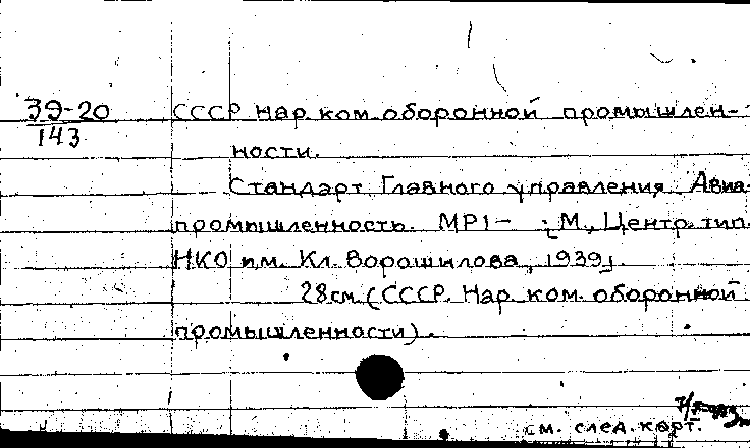 39-20
143
СССР Нар. ком. оборонной промышлен-
ности.
Стандарт Главного управления Авиа-
промышленность. МР1- [М., Центр. тип.
НКО им. Кл. Ворошилова, 1939].
28см. (СССР. Нар. ком. оборонной
промышленности).
см. след. карт.